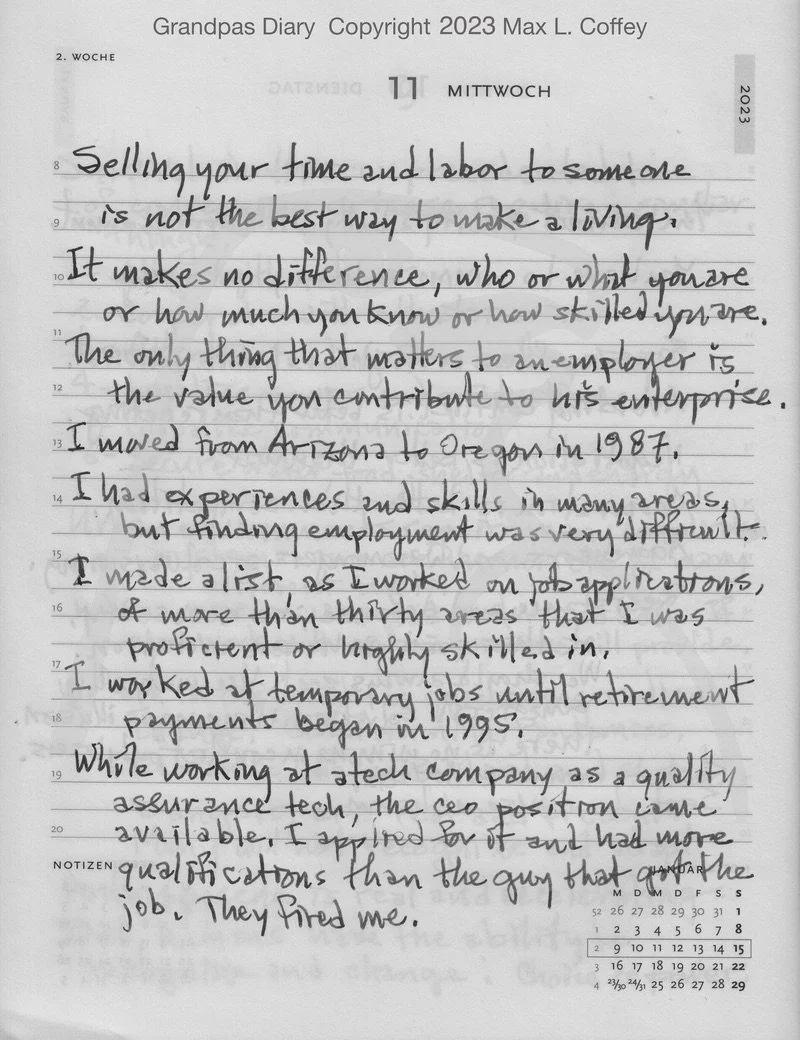 Grandpas Diary Copyright 2023 Max L. Coffey
2. WOCHE
11 MITTWOCH
2023
8 Selling your time and labor to someone
9 is not the best way to make a living.
10 It makes no difference, who or what you are
or how much you know or how skilled you are.
11 The only thing that matters to an employer is
12 the value you contribute to his enterprise.
13 I moved from Arizona to Oregon in 1987.
14 I had experiences and skills in many areas,
but finding employment was very difficult.
15 I made a list, as I worked on job applications,
16 of more than thirty areas that I was
proficient or highly skilled in.
17 I worked at temporary jobs until retirement
18 payments began in 1995.
19 While working at a tech company as a quality
assurance tech, the ceo position came
20 available. I applied for it and had more
NOTIZEN qualifications than the guy that got the
job. They fired me.
JANUAR
M D M D F S S
52 26 27 28 29 30 31 1
1 2 3 4 5 6 7 8
2 9 10 11 12 13 14 15
3 16 17 18 19 20 21 22
4 23/30 24/31 25 26 27 28 29